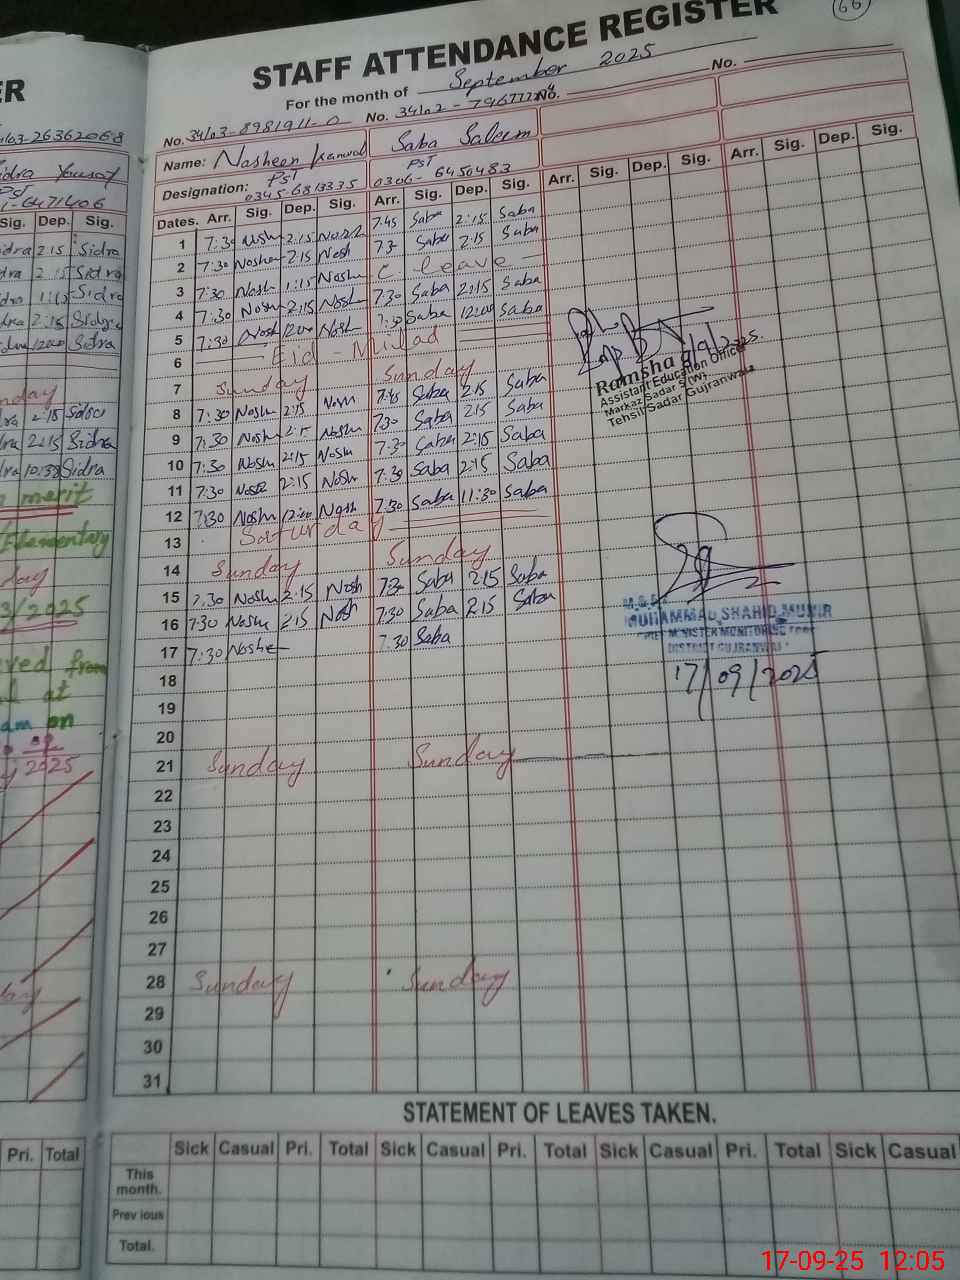 ER
STAFF ATTENDANCE REGISTER
66
For the month of September 2025
No. 34103-8981911-0 No. 34102-7967772 No. No.
Name: Nosheen Kanwal Saba Saleem
Designation: PST PST
0345-6813335 0306-6450483
Dates. Arr. Sig. Dep. Sig. Arr. Sig. Dep. Sig. Arr. Sig. Dep. Sig. Arr. Sig. Dep. Sig.
1 7:30 Nosh 2:15 7:45 Saba 2:15 Saba
2 7:30 Noshe 2:15 Nosh 7:30 Saba 2:15 Saba
3 7:30 Nosh 1:15 Noshe C. leave
4 7:30 Nosh 2:15 Nosh 7:30 Saba 2:15 Saba
5 7:30 Nosh 12:00 Nosh 7:30 Saba 12:00 Saba
6 Eid - Milad
7 Sunday Sunday
8 7:30 Nosh 2:15 Nosh 7:45 Saba 2:15 Saba
9 7:30 Noshe 2:15 Noshe 7:30 Saba 2:15 Saba
10 7:30 Nosh 2:15 Nosh 7:30 Saba 2:15 Saba
11 7:30 Noshe 2:15 Nosh 7:30 Saba 2:15 Saba
12 7:30 Nosh 12:00 Nosh 7:30 Saba 11:30 Saba
13 Saturday
14 Sunday Sunday
15 7:30 Nosh 2:15 Nosh 7:30 Saba 2:15 Saba
16 7:30 Nosh 2:15 Nosh 7:30 Saba 2:15 Saba
17 7:30 Noshe 7:30 Saba
18
19
20
21 Sunday Sunday
22
23
24
25
26
27
28 Sunday Sunday
29
30
31
Ramsha
9/9/2025
Assistant Education Officer
Markaz Sadar 5 (W)
Tehsil Sadar Gujranwala
MUHAMMAD SHAHID MUNIR
DISTRICT GUJRANWALA
17/09/2025
STATEMENT OF LEAVES TAKEN.
Sick Casual Pri. Total Sick Casual Pri. Total Sick Casual Pri. Total Sick Casual
This month.
Previous
Total.
Sidra Yousaf
Sig. Dep. Sig.
2:15 Sidra
2:15 Sidra
1:15 Sidra
2:15 Sidra
12:00 Sidra
2:15 Sidra
2:15 Sidra
10:38 Sidra
merit
Elementary
2025
from
at
on
2025
Pri. Total
17-09-25 12:05